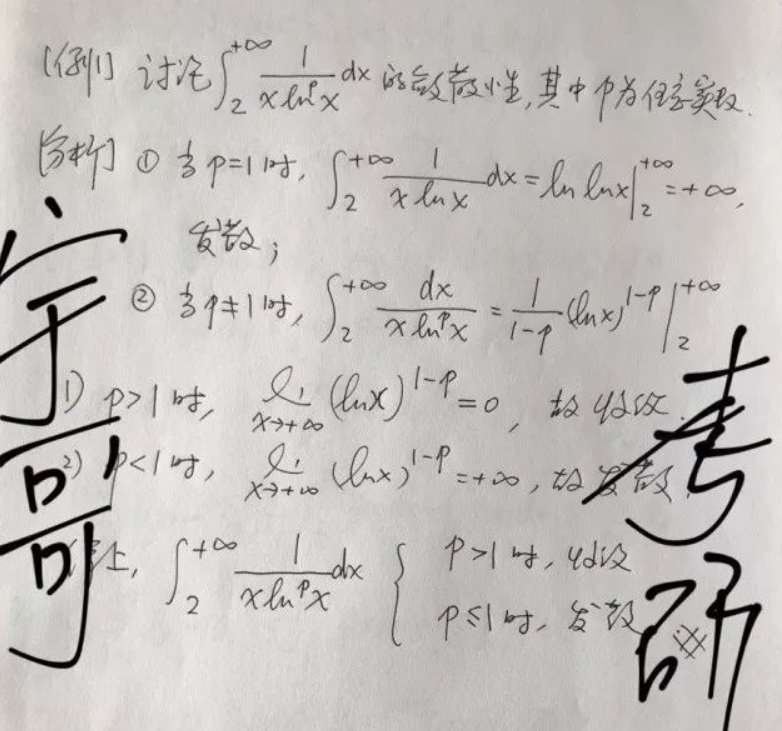 [例1] 讨论∫₂^{+∞} 1/(x lnᵖx) dx 的敛散性,其中 p为任意实数.
[分析] ① 当 p=1 时, ∫₂^{+∞} 1/(x ln x) dx = ln lnx |₂^{+∞} = +∞,
发散;
② 当 p≠1 时, ∫₂^{+∞} dx/(x lnᵖx) = 1/(1-p) (lnx)^{1-p} |₂^{+∞}
1) p>1 时, lim_{x→+∞} (lnx)^{1-p} = 0, 故收敛.
2) p<1 时, lim_{x→+∞} (lnx)^{1-p} = +∞, 故发散.
综上, ∫₂^{+∞} 1/(x lnᵖx) dx { p>1 时, 收敛
p≤1 时, 发散
宇哥
考研